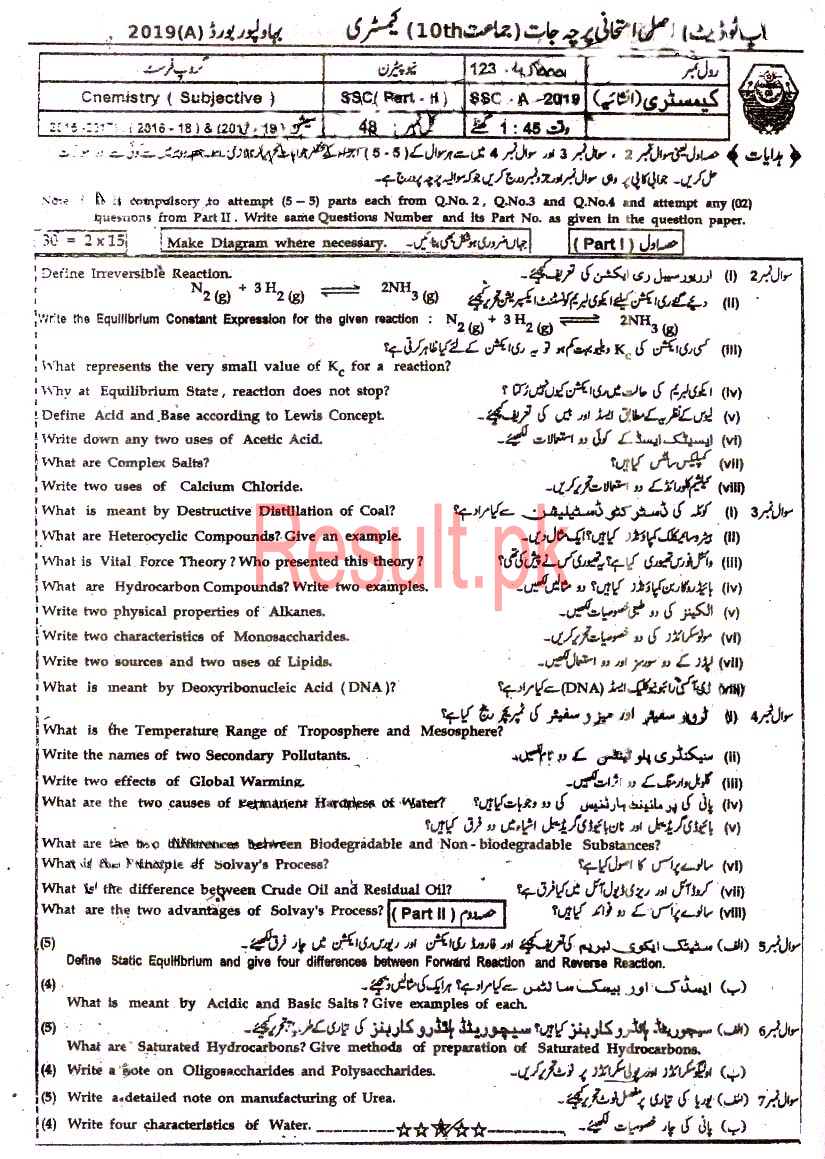 اپ ٹو ڈیٹ) اصلی امتحانی پرچہ جات (جماعت 10th) کیمسٹری بہاولپور بورڈ 2019(A)
رول نمبر 123 نیو پیٹرن گروپ فرسٹ
کیمسٹری (انشائیہ) SSC - A - 2019 SSC( Part - II ) Chemistry ( Subjective )
وقت 1 : 45 گھنٹے کل نمبر 48 سیشن (2016 - 18) &
﴿ ہدایات ﴾ حصہ اول یعنی سوال نمبر 2 ، سوال نمبر 3 اور سوال نمبر 4 میں سے ہر سوال کے (5 - 5)
حل کریں۔ جوابی کاپی پر وہی سوال نمبر اور جزو نمبر درج کریں جو کہ سوالیہ پرچہ پر درج ہے۔
Note : It is compulsory to attempt (5 – 5) parts each from Q.No. 2 , Q.No.3 and Q.No.4 and attempt any (02)
questions from Part II . Write same Questions Number and its Part No. as given in the question paper.
30 = 2 x 15 Make Diagram where necessary. جہاں ضروری ہو شکل بھی بنائیں۔ ( Part I ) حصہ اول
Define Irreversible Reaction. سوال نمبر 2 (i) ارریورسیبل ری ایکشن کی تعریف کیجئے۔
N2 (g) + 3 H2 (g) ⇌ 2NH3 (g) (ii) دیے گئے ری ایکشن کیلئے ایکوی لبریم کونسٹنٹ ایکسپریشن تحریر کیجئے
Write the Equilibrium Constant Expression for the given reaction : N2 (g) + 3 H2 (g) ⇌ 2NH3 (g)
(iii) کسی ری ایکشن کی Kc ویلیو بہت کم ہو تو یہ ری ایکشن کے لئے کیا ظاہر کرتی ہے؟
What represents the very small value of Kc for a reaction?
Why at Equilibrium State , reaction does not stop? (iv) ایکوی لبریم کی حالت میں ری ایکشن کیوں نہیں رکتا ؟
Define Acid and Base according to Lewis Concept. (v) لیوس کے نظریہ کے مطابق ایسڈ اور بیس کی تعریف کیجئے۔
Write down any two uses of Acetic Acid. (vi) ایسیٹک ایسڈ کے کوئی دو استعمالات لکھیئے۔
What are Complex Salts? (vii) کمپلیکس سالٹس کیا ہیں؟
Write two uses of Calcium Chloride. (viii) کیلشیم کلورائڈ کے دو استعمالات تحریر کریں۔
What is meant by Destructive Distillation of Coal? سوال نمبر 3 (i) کوئلہ کی ڈسٹرکٹو ڈسٹیلیشن سے کیا مراد ہے؟
What are Heterocyclic Compounds? Give an example. (ii) ہیٹروسائیکلک کمپاؤنڈز کیا ہیں؟ ایک مثال دیں۔
What is Vital Force Theory ? Who presented this theory? (iii) وائٹل فورس تھیوری کیا ہے؟ یہ تھیوری کس نے پیش کی تھی؟
What are Hydrocarbon Compounds? Write two examples. (iv) ہائیڈروکاربن کمپاؤنڈز کیا ہیں؟ دو مثالیں لکھیں۔
Write two physical properties of Alkanes. (v) الکینز کی دو طبعی خصوصیات لکھیں۔
Write two characteristics of Monosaccharides. (vi) مونوسکرائڈز کی دو خصوصیات تحریر کریں۔
Write two sources and two uses of Lipids. (vii) لپڈز کے دو سورسز اور دو استعمال لکھیں۔
What is meant by Deoxyribonucleic Acid ( DNA )? (viii) ڈی آکسی رائبو نیوکلیک ایسڈ (DNA) سے کیا مراد ہے؟
سوال نمبر 4 (i) ٹروپوسفیئر اور میزوسفیئر کی ٹمپریچر رینج کیا ہے؟
What is the Temperature Range of Troposphere and Mesosphere?
Write the names of two Secondary Pollutants. (ii) سیکنڈری پلوٹینٹس کے دو نام لکھیں۔
Write two effects of Global Warming. (iii) گلوبل وارمنگ کے دو اثرات لکھیں۔
What are the two causes of Permanent Hardness of Water? (iv) پانی کی پرمانینٹ ہارڈنیس کی دو وجوہات کیا ہیں؟
(v) بائیوڈی گریڈیبل اور نان بائیوڈی گریڈیبل اشیاء میں دو فرق کیا ہیں؟
What are the two differences between Biodegradable and Non - biodegradable Substances?
What is the Principle of Solvay's Process? (vi) سالوے پراسس کا اصول کیا ہے؟
What is the difference between Crude Oil and Residual Oil? (vii) کروڈ آئل اور ریزی ڈیول آئل میں کیا فرق ہے؟
What are the two advantages of Solvay's Process? ( Part II ) حصہ دوم (viii) سالوے پراسس کے دو فوائد کیا ہیں؟
(5) سوال نمبر 5 (الف) سٹیٹک ایکوی لبریم کی تعریف کیجئے اور فارورڈ ری ایکشن اور ریورس ری ایکشن میں چار فرق لکھیئے۔
Define Static Equilibrium and give four differences between Forward Reaction and Reverse Reaction.
(4) (ب) ایسڈک اور بیسک سالٹس سے کیا مراد ہے؟ ہر ایک کی مثالیں دیجئے۔
What is meant by Acidic and Basic Salts ? Give examples of each.
(5) سوال نمبر 6 (الف) سیچوریٹڈ ہائڈروکاربنز کیا ہیں؟ سیچوریٹڈ ہائڈروکاربنز کی تیاری کے طریقے تحریر کیجئے۔
What are Saturated Hydrocarbons? Give methods of preparation of Saturated Hydrocarbons.
(4) Write a note on Oligosaccharides and Polysaccharides. (ب) اولیگوسکرائڈز اور پولی سکرائڈز پر نوٹ تحریر کریں۔
(5) Write a detailed note on manufacturing of Urea. سوال نمبر 7 (الف) یوریا کی تیاری پر مفصل نوٹ تحریر کیجئے۔
(4) Write four characteristics of Water. (ب) پانی کی چار خصوصیات لکھیئے۔
Result.pk